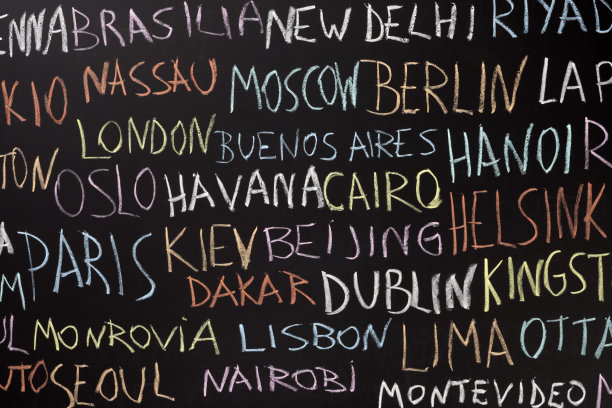 ENNA BRASILIA NEW DELHI RIYAD
KIO NASSAU MOSCOW BERLIN LA P
LONDON BUENOS AIRES HANOI R
TON OSLO HAVANA CAIRO HELSINK
A PARIS KIEV BEIJING
M DAKAR DUBLIN KINGST
UL MONROVIA LISBON LIMA OTTA
UTO SEOUL NAIROBI MONTEVIDEO